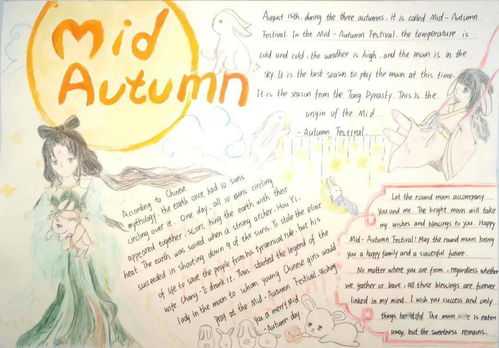 Mid
Autumn
August 15th, during the three autumns. It is called Mid - Autumn
Festival. In the Mid - Autumn Festival, the temperature is
cold and cold, the weather is high, and the moon is in the
sky. It is the best season to play the moon at this time.
It is the season from the Tang Dynasty. This is the
origin of the Mid
- Autumn Festival.
According to Chinese
mythology, the earth once had 10 suns
circling over it. One day, all 10 suns circling
appeared together, scorching the earth with their
heat. The earth was saved when a strong archer, Hou Yi,
succeeded in shooting down 9 of the suns. Yi stole the elixir
of life to save the people from his tyrannical rule, but his
wife Chang-E drank it. Thus, started the legend of the
lady in the moon to whom young Chinese girls would
pray at the Mid - Autumn Festival. wishing
you a merry Mid
- Autumn day
Let the round moon accompany
you and me. The bright moon will take
my wishes and blessings to you. Happy
Mid - Autumn Festival! May the round moon bring
you a happy family and a successful future.
No matter where you are from, regardless whether
we gather or leave, all those blessings are forever
linked in my mind. I wish you success and only
things beautiful. The moon cake is eaten
away, but the sweetness remains.